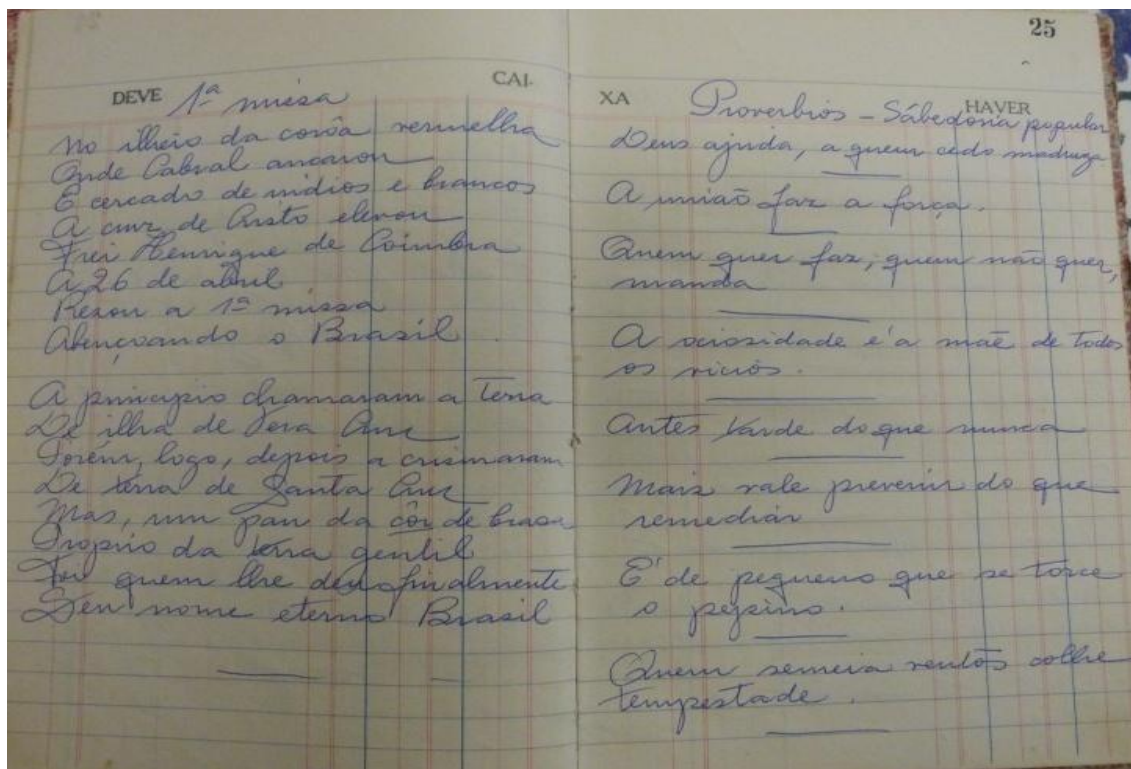 25
DEVE
CAI-
XA
HAVER
1ª missa
No ilheio da corôa vermelha
Onde Cabral ancorou
E cercado de indios e brancos
A cruz de Cristo elevou
Frei Henrique de Coimbra
A 26 de abril
Rezou a 1ª missa
Abençoando o Brasil.
A principio chamaram a terra
De ilha de Vera Cruz
Porém, logo, depois a crismaram
De terra de Santa Cruz
Mas, um pau da côr de brasa
Proprio da terra gentil
Foi quem lhe deu finalmente
Seu nome eterno Brasil
Proverbios - Sabedoria popular
Deus ajuda, a quem cedo madruga
A união faz a força.
Quem quer faz, quem não quer,
manda
A ociosidade é a mãe de todos
os vicios.
Antes tarde do que nunca
Mais vale prevenir do que
remediar
E' de pequeno que se torce
o pepino.
Quem semeia ventos colhe
tempestade.